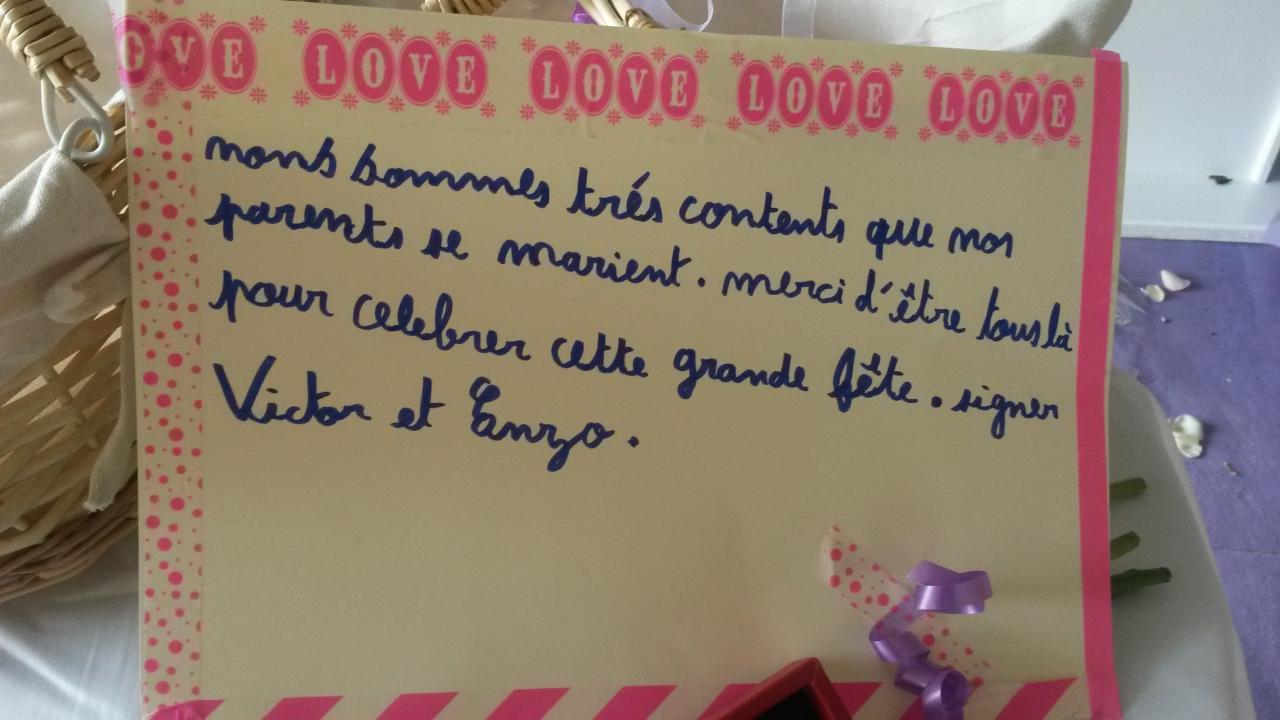 OVE LOVE LOVE LOVE LOVE
nous sommes trés contents que nos
parents se marient. merci d'être tous là
pour celebrer cette grande fête. signer
Victor et Enzo.